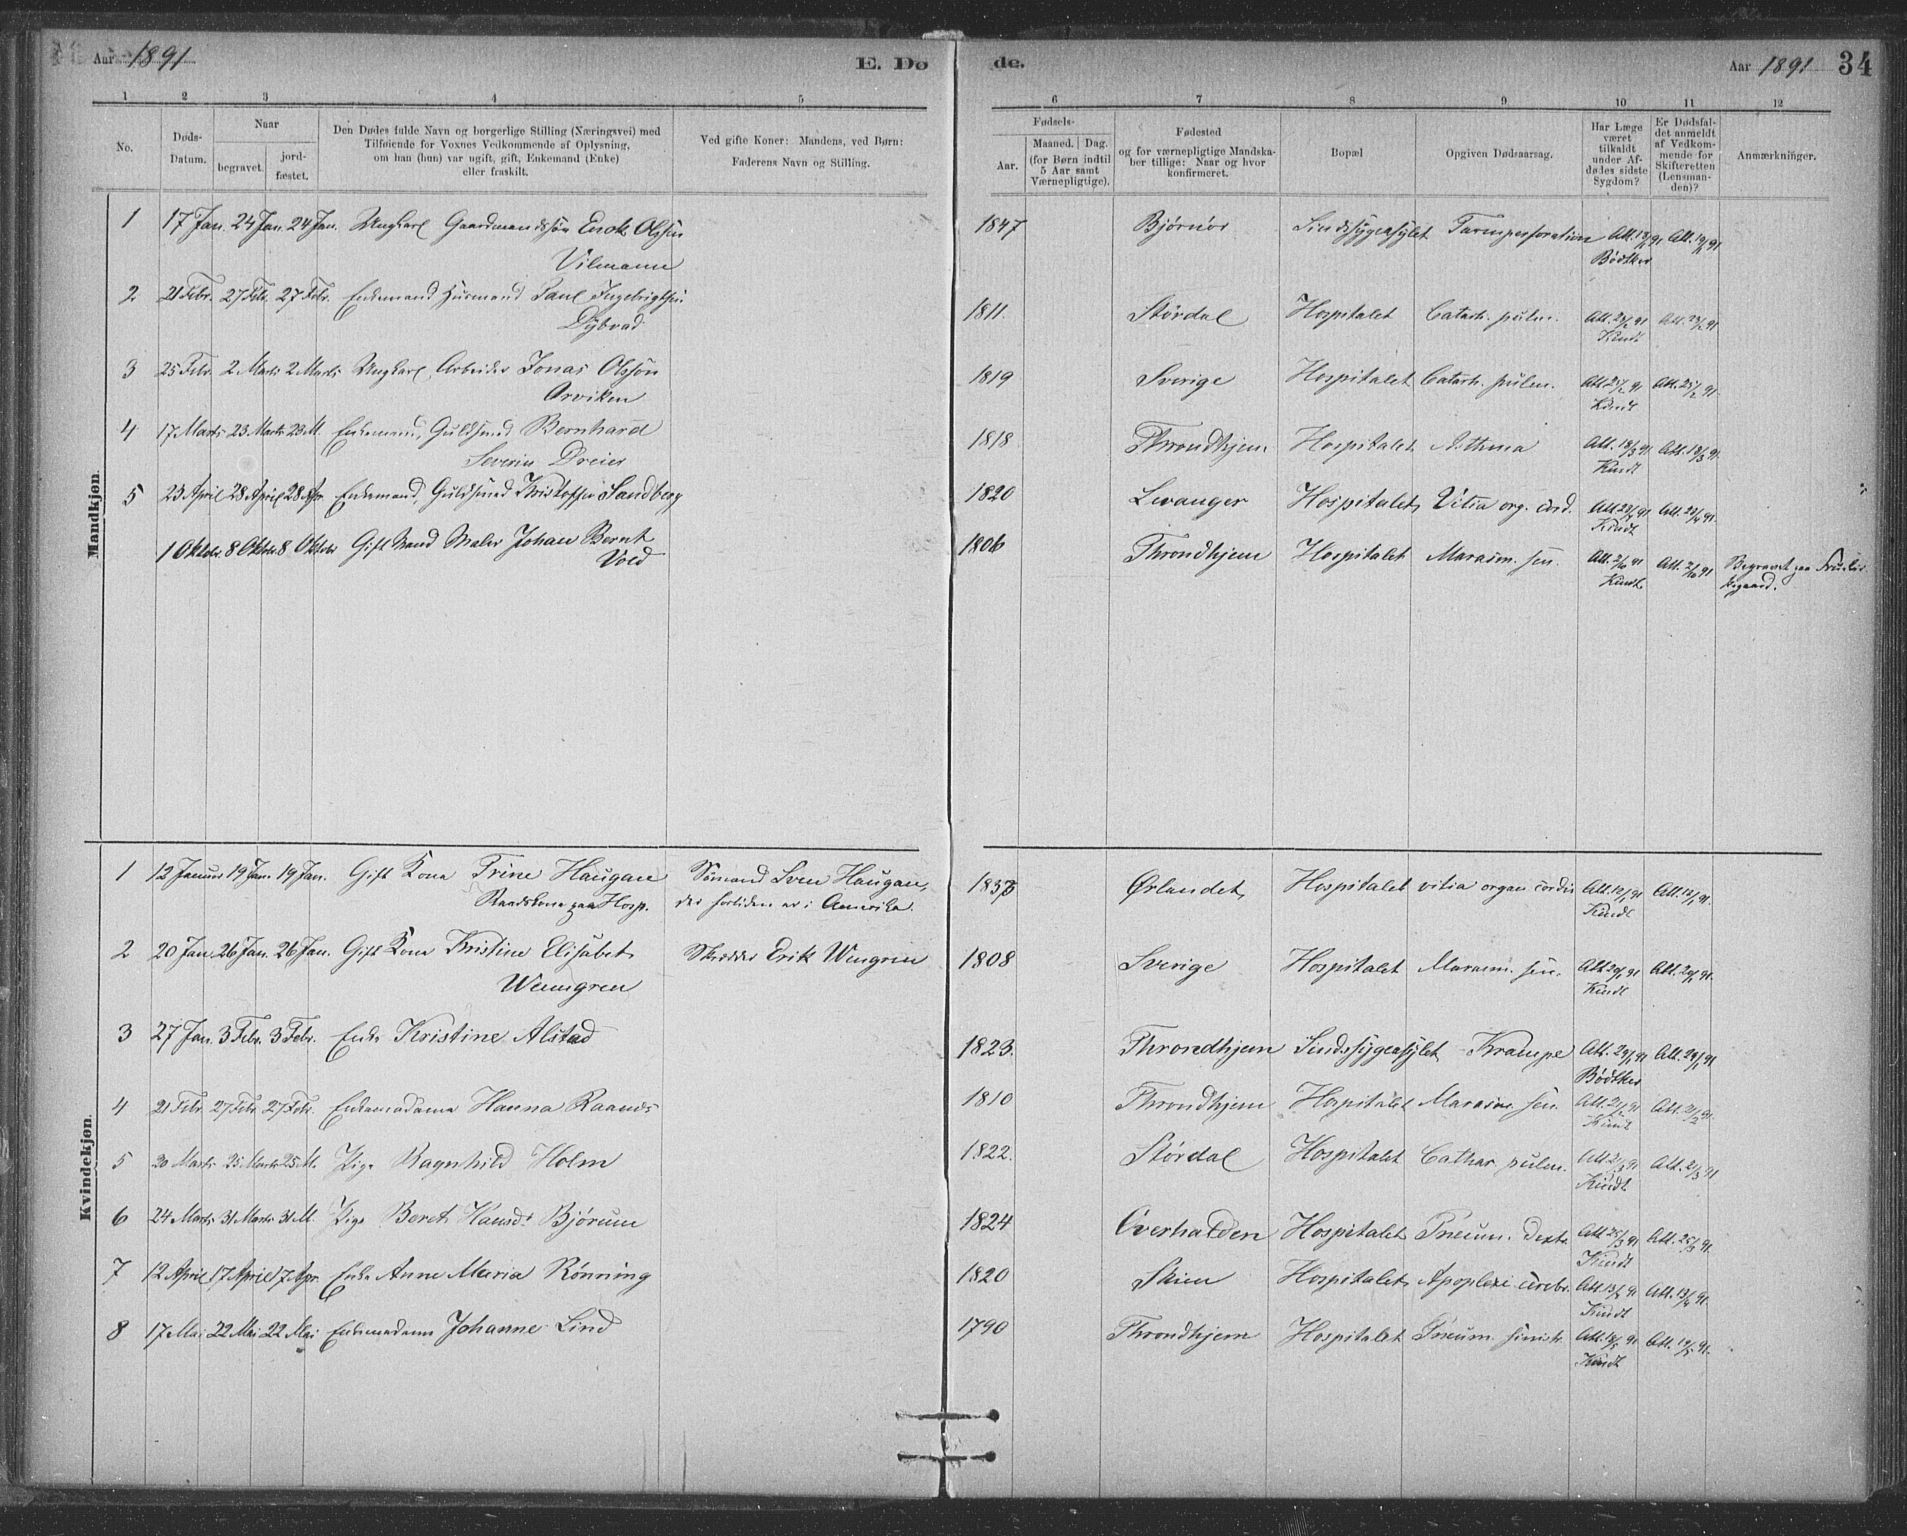 Aar 1891
E. Dø
de.
Aar 1891
34
1 2 3 4 5 6 7 8 9 10 11 12
No.
Døds-Datum.
Naar
begravet.
jord-fæstet.
Den Dødes fulde Navn og borgerlige Stilling (Næringsvei) med
Tilføiende for Voxnes Vedkommende af Oplysning,
om han (hun) var ugift, gift, Enkemand (Enke)
eller fraskilt.
Ved gifte Koner: Mandens, ved Børn:
Faderens Navn og Stilling.
Fødsels-
Aar.
Maaned. Dag.
(for Børn indtil
5 Aar samt
Værnepligtige).
Fødested
og for værnepligtige Mandska-
ber tillige: Naar og hvor
konfirmeret.
Bopæl
Opgiven Dødsaarsag.
Har Læge
været
tilkaldt
under Af-
dødes sidste
Sygdom?
Er Dødsfal-
det anmeldt
af Vedkom-
mende for
Skifteretten
(Lensman-
den)?
Anmærkninger.
Mandkjøn.
1 17 Jan. 24 Jan. 24 Jan. Ungkarl Gaardmandssøn Enok Olsen 1847 Bjørnør Sindssygeasylet Tarmperforation Att. 18/1 91 Att. 19/1 91
Vilmann Bödtker
2 21 Febr. 27 Febr. 27 Febr. Enkemand Husmand Paul Ingebrigtsen 1811. Størdal Hospitalet Catarh. pulm. Att. 23/2 91 Att. 23/2 91
Dybvad Kindt
3 25 Febr. 2 Marts 2 Marts Ungkarl, Arbeider Jonas Olsson 1819 Sverige Hospitalet Catarh. pulm. Att. 25/2 91 Att. 25/2 91.
Arviken Kindt
4 17 Marts 23 Marts 23 M. Enkemand, Guldsmed Bernhard 1818 Throndhjem Hospitalet Asthma Att. 18/3 91 Att. 18/3 91.
Severin Dreier Kindt
5 23 April 28 April 28 Apr. Enkemand, Guldsmed Kristoffer Sandberg 1820 Levanger Hospitalet Vitia org. cord. Att. 23/4 91 Att. 23/4 91.
Kindt
1 Oktobr. 8 Oktbr. 8 Oktober Gift Mand Maler Johan Bernt 1806 Throndhjem Hospitalet Marasm. sen. Att. 2/10 91 Att. 2/10 91 Begravet paa Fruekir-
Vold Kindt. kegaard.
Kvindekjøn.
1 12 Januar 19 Jan. 19 Jan. Gift Kone Trine Haugan Sømand Sven Haugan, 1833 Ørlandet Hospitalet vitia organ cordis Att. 12/1 91 Att. 12/1 91.
paa Hosp. der fortiden er i Amerika. Kindt
2 20 Jan. 26 Jan. 26 Jan. Gift Kone Kristine Elisabet Skrædder Erik Wengren 1808 Sverige Hospitalet Marasm. sen. Att. 20/1 91 Att. 20/1 91.
Wenngren Kindt
3 27 Jan. 3 Febr. 3 Febr. Enke Kristine Alstad 1823. Throndhjem Sindssygeasylet Krampe Att. 29/1 91 Att. 29/1 91
Bödtker
4 21 Febr. 27 Febr 27 Febr. Enkemadame Hanna Raanes 1810 Throndhjem Hospitalet Marasm. sen. Att. 21/2 91 Att. 21/2 91.
Kindt
5 20 Marts 25 Marts 25 M. Pige Ragnhild Holm 1822. Størdal Hospitalet Cathar. pulm. Att. 21/3 91 Att. 21/3 91
Kindt
6 24 Marts 31 Marts 31 M. Pige Beret Hansd. Bjørum 1824 Overhalden Hospitalet Pneum. dextr. Att. 25/3 91 Att. 25/3 91.
Kindt
7 12 April 17 April 17 Apr. Enke Anne Maria Rönning 1820 Skien Hospitalet Apoplexi cerebr. Att. 13/4 91 Att. 13/4 91.
Kindt
8 17 Mai 22 Mai 22 Mai Enkemadam Johanne Lind 1790 Throndhjem Hospitalet Pneum. sinistr. Att. 18/5 91 Att. 19/5 91.
Kindt